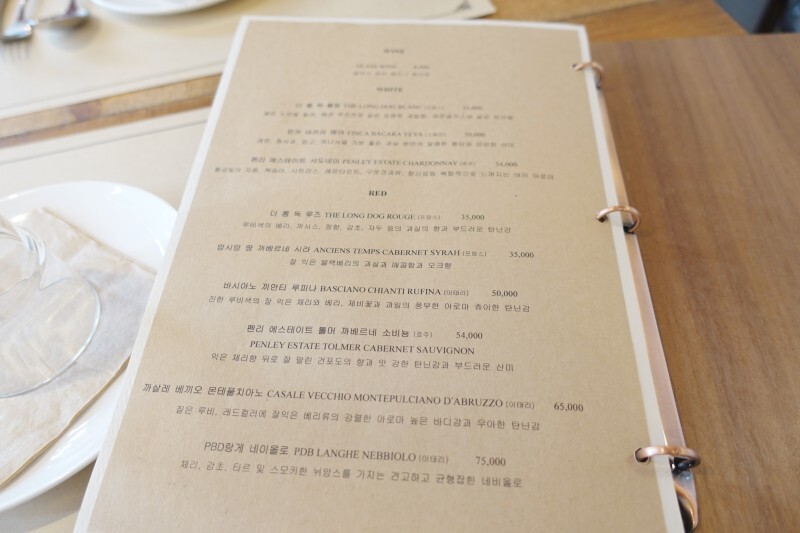 WINE
WHITE
더 롱 독 블랑 THE LONG DOG BLANC (프랑스) 35,000
핀카 바카라 예야 FINCA BACARA YEYA (스페인) 50,000
펜리 에스테이트 샤도네이 PENLEY ESTATE CHARDONNAY (호주) 54,000
RED
더 롱 독 루즈 THE LONG DOG ROUGE (프랑스) 35,000
루비색의 베리, 까시스, 정향, 감초, 자두 잼의 과실의 향과 부드러운 탄닌감
앙시앙 땅 까베르네 시라 ANCIENS TEMPS CABERNET SYRAH (프랑스) 35,000
잘 익은 블랙베리의 과실과 매콤함과 오크향
바시아노 끼안티 루피나 BASCIANO CHIANTI RUFINA (이태리) 50,000
진한 루비색의 잘 익은 체리와 베리, 제비꽃과 과일의 풍부한 아로마 츄이한 탄닌감
펜리 에스테이트 톨머 까베르네 소비뇽 (호주) 54,000
PENLEY ESTATE TOLMER CABERNET SAUVIGNON
익은 체리향 뒤로 잘 말린 건포도의 향과 맛 강한 탄닌감과 부드러운 산미
까살레 베끼오 몬테풀치아노 CASALE VECCHIO MONTEPULCIANO D'ABRUZZO (이태리) 65,000
짙은 루비, 레드컬러에 잘익은 베리류의 강렬한 아로마 높은 바디감과 우아한 탄닌감
PBD랑게 네이올로 PDB LANGHE NEBBIOLO (이태리) 75,000
체리, 감초, 타르 및 스모키한 뉘앙스를 가지는 견고하고 균형잡힌 네비올로